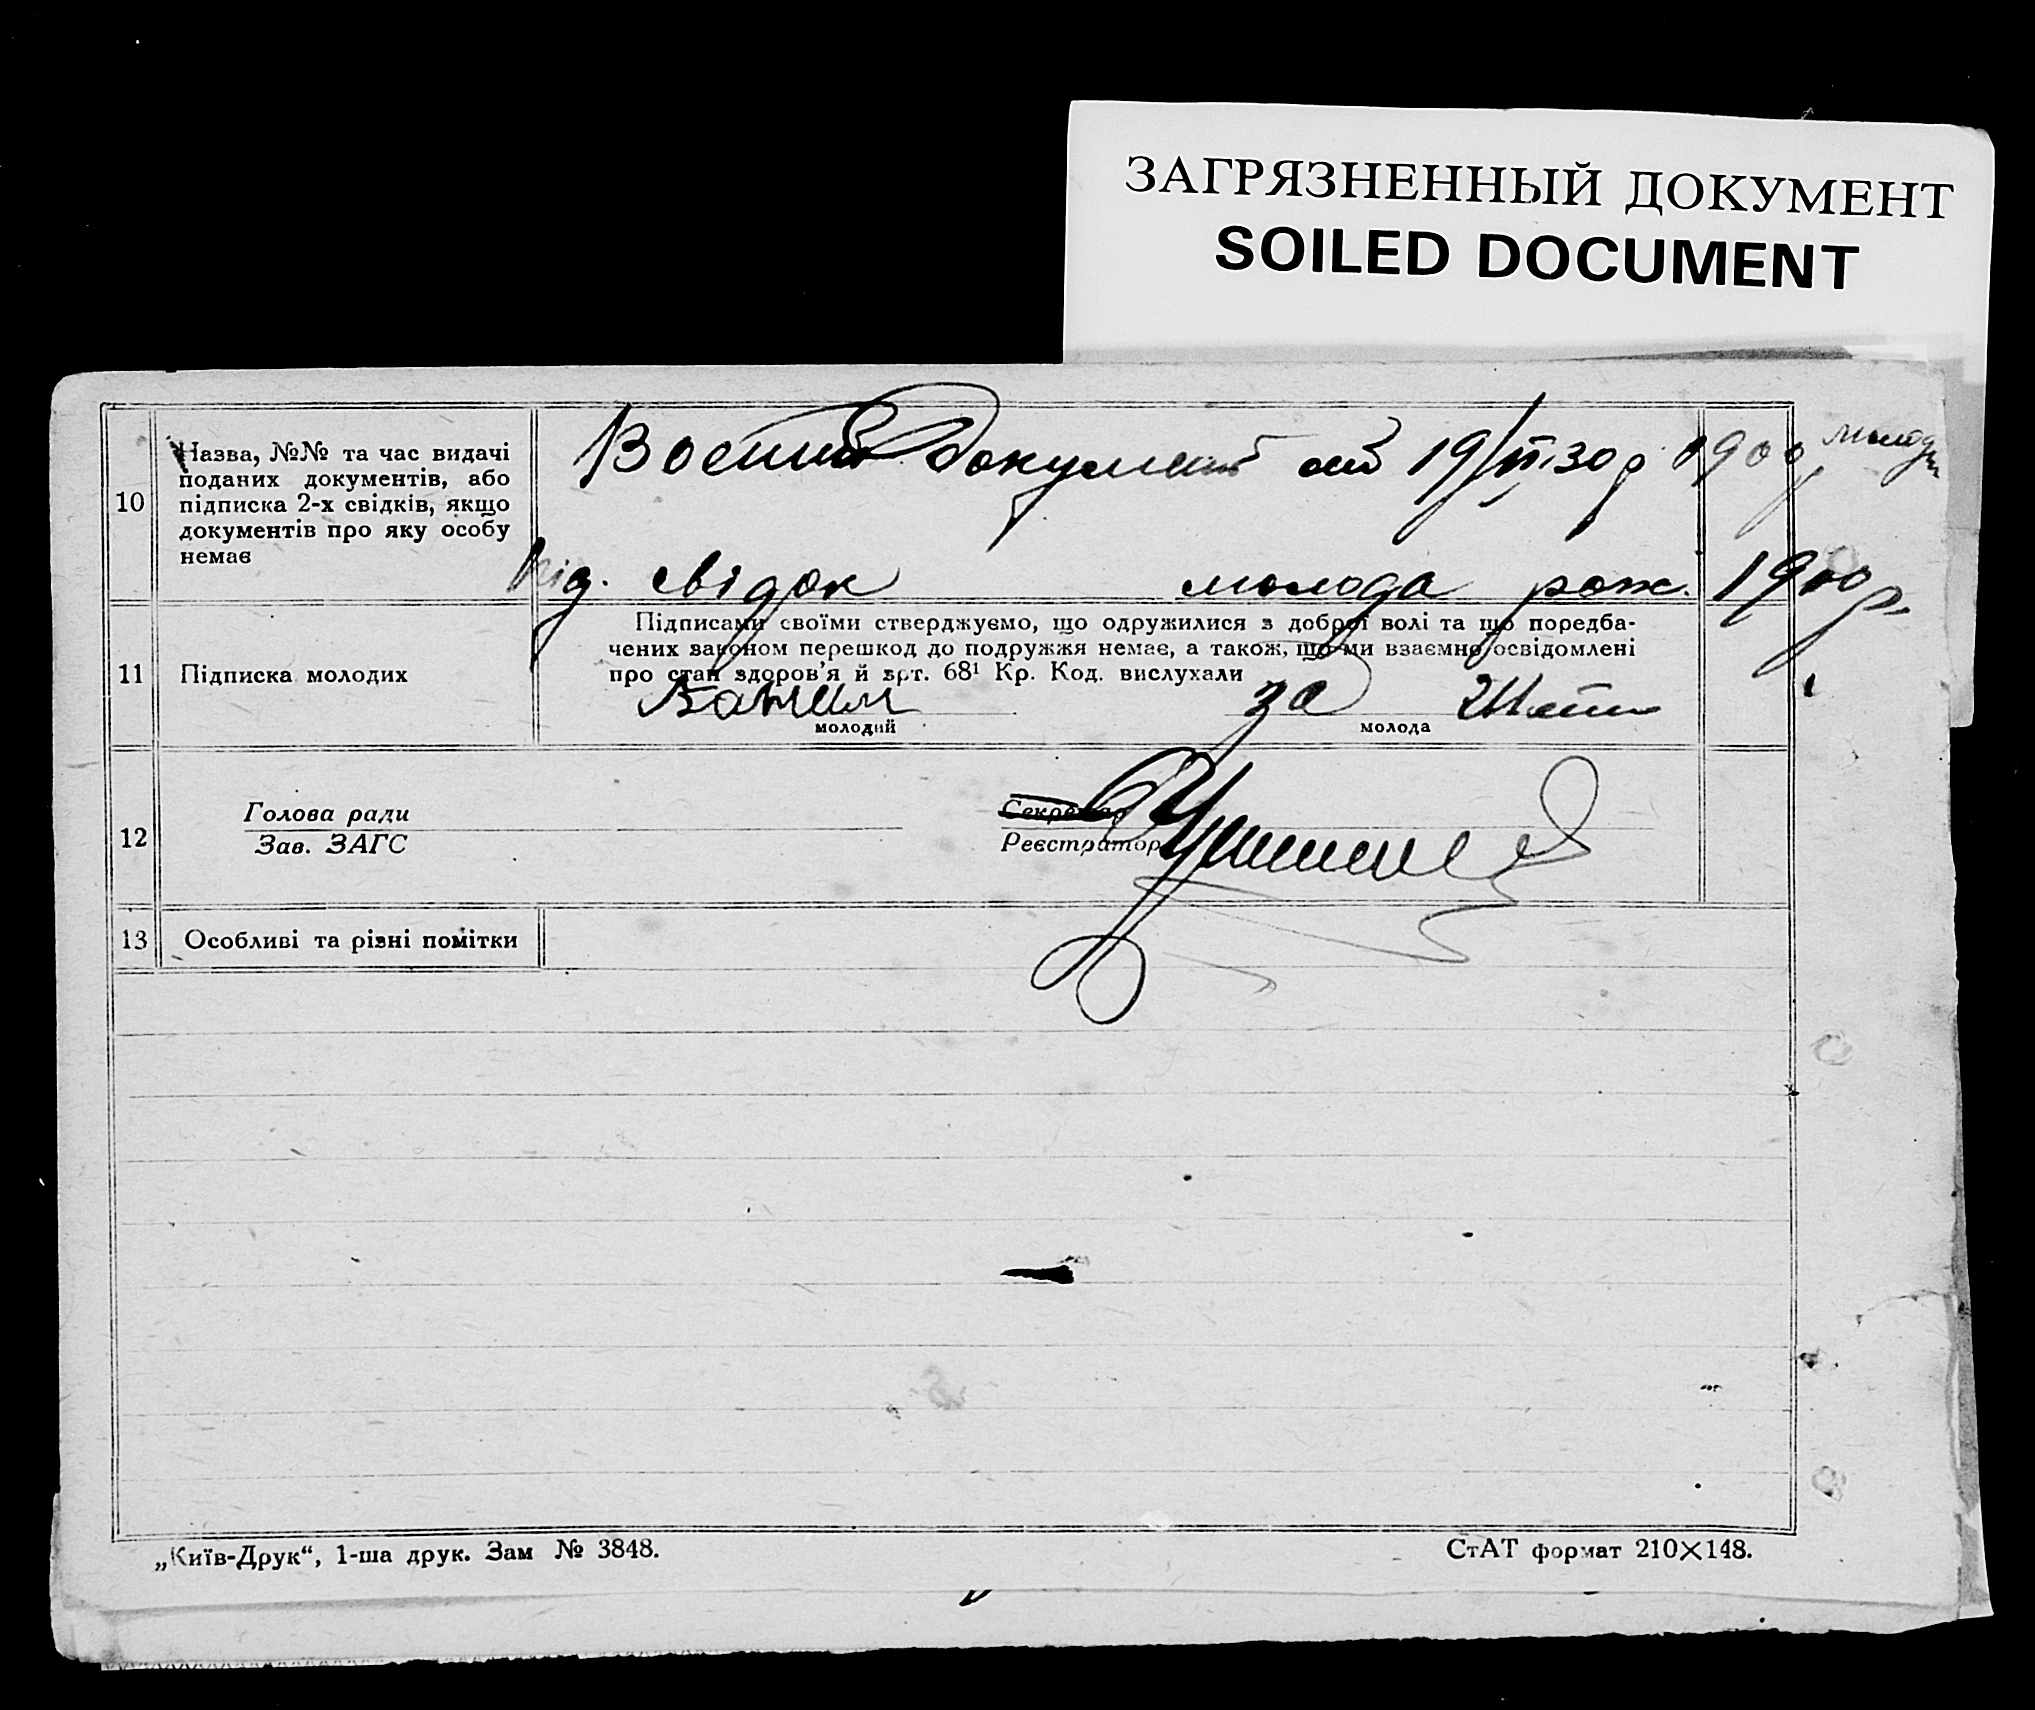 ЗАГРЯЗНЕННЫЙ ДОКУМЕНТ
SOILED DOCUMENT
10
Назва, №№ та час видачі
поданих документів, або
підписка 2-х свідків, якщо
документів про яку особу
немає
документ 19/VI 30 р 1900
від. свідок молода рож. 1900 р.
11
Підписка молодих
Підписами своїми стверджуємо, що одружилися з доброї волі та що поредба-
чених законом перешкод до подружжя немає, а також, що ми взаємно освідомлені
про стан здоров'я й арт. 68¹ Кр. Код. вислухали
за
молодий
молода
12
Голова ради
Зав. ЗАГС
Секретар
Реєстратор
13
Особливі та різні помітки
„Київ-Друк“, 1-ша друк. Зам № 3848.
СтАТ формат 210×148.